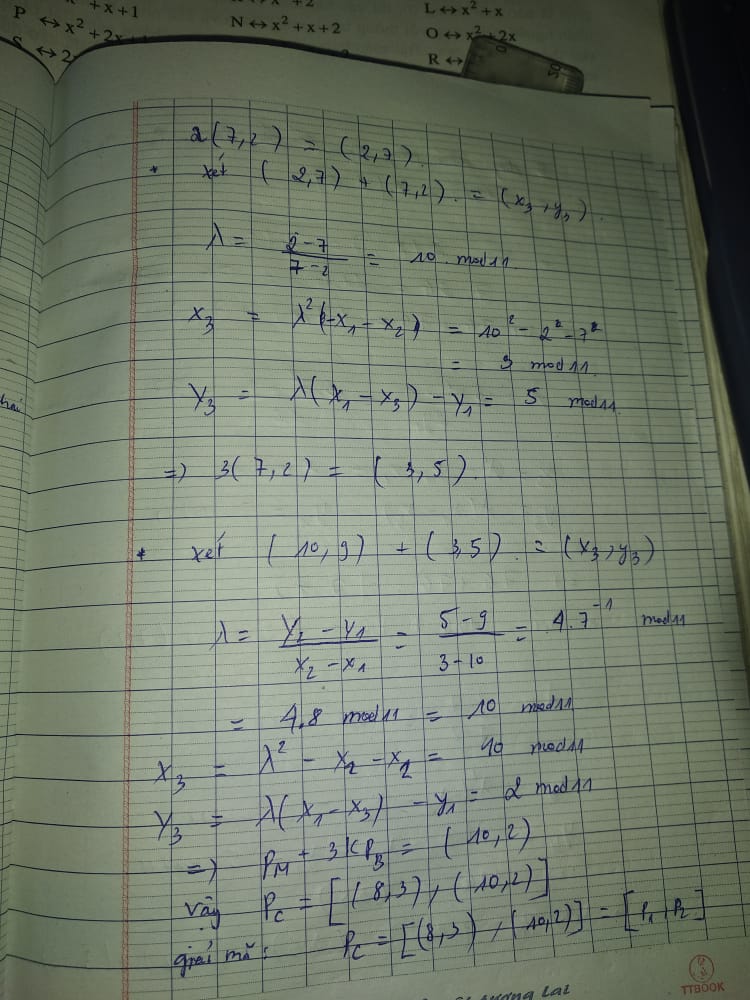 + x + 1
P ↔ x² + 2x +
S ↔ 2
N ↔ x² + x + 2
L ↔ x² + x
O ↔ x² + 2x
R ↔
2(7,2) = (2,7).
* xét (2,7) + (7,2) = (x₃, y₃).
λ = (2-7)/(7-2) = 10 mod 11
x₃ = λ²(-x₁ - x₂) = 10² - 2² - 7²
= 3 mod 11.
y₃ = λ(x₁ - x₃) - y₁ = 5 mod 11
=) 3(7,2) = (3,5).
* xét (10,9) + (3,5) = (x₃, y₃)
λ = (y₂ - y₁)/(x₂ - x₁) = (5-9)/(3-10) = 4.7⁻¹ mod 11
= 4.8 mod 11 = 10 mod 11
x₃ = λ² - x₂ - x₂ = 10 mod 11
y₃ = λ(x₁ - x₃) - y₁ = 2 mod 11
=) P_M + 3KP_B = (10,2)
vậy P_C = [(8,3), (10,2)]
giải mã: P_C = [(8,3), (10,2)] = [P₁, P₂]
TTBOOK